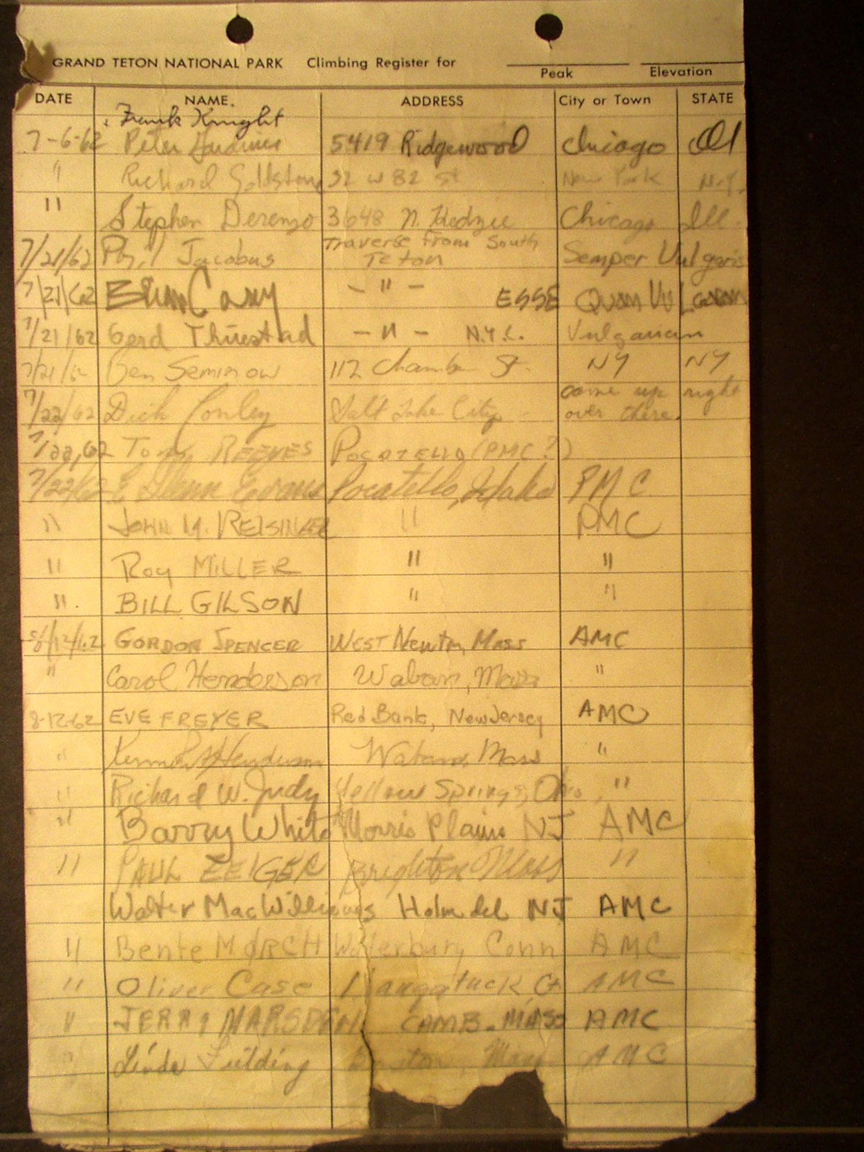 GRAND TETON NATIONAL PARK Climbing Register for
Peak Elevation
DATE NAME. ADDRESS City or Town STATE
Frank Knight
7-6-62 Peter 5419 Ridgewood Chicago Ill
" Richard Goldstone 32 W 82 St New York N.Y.
" Stephen Derenzo 3648 N. Kedzie Chicago Ill.
7/21/62 Phil Jacobus Traverse from South Teton Semper Vulgaris
7/21/62 Casey - " - ESSE Quam
7/21/62 Gerd Thuestad - " - N.Y.C. Vulgarian
7/21/62 Ben Seminow 112 Chamber St. NY NY
7/22/62 Dick Conley Salt Lake City come up right over there.
7/22/62 Tom REEVES POCATELLO (PMC?)
7/22/62 E Glenn Evans Pocatello, Idaho PMC
" JOHN M. REISINGER " PMC
" Roy MILLER " "
". BILL GILSON " "
8/12/62 GORDON SPENCER WEST Newton, Mass AMC
" Carol Henderson Waban, Mass "
8-12-62 EVE FREYER Red Bank, New Jersey AMC
" Henderson Waban, Mass "
" Richard W. Judy Yellow Springs, Ohio, "
" Barry White Morris Plains NJ AMC
" PAUL ZEIGER Brighton Mass "
Walter MacWilliams Holmdel NJ AMC
" Bente MØRCH Waterbury Conn AMC
" Oliver Case Naugatuck Ct AMC
" JERRY MARSDEN CAMB. MASS AMC
" Linda Fielding Mass AMC